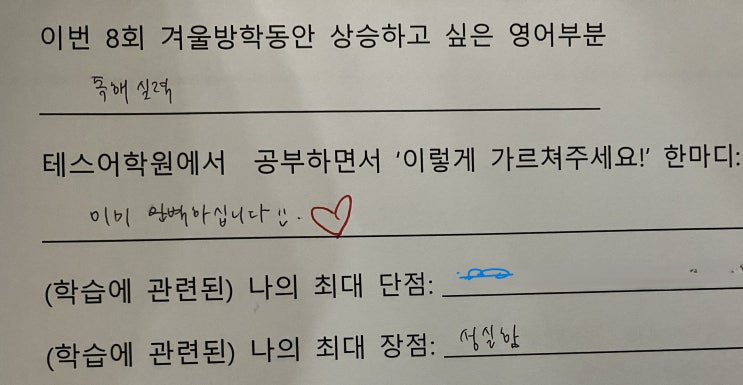 이번 8회 겨울방학동안 상승하고 싶은 영어부분
독해 실력
테스어학원에서 공부하면서 '이렇게 가르쳐주세요!' 한마디:
이미 완벽하십니다 :).
(학습에 관련된) 나의 최대 단점:
(학습에 관련된) 나의 최대 장점: 성실함